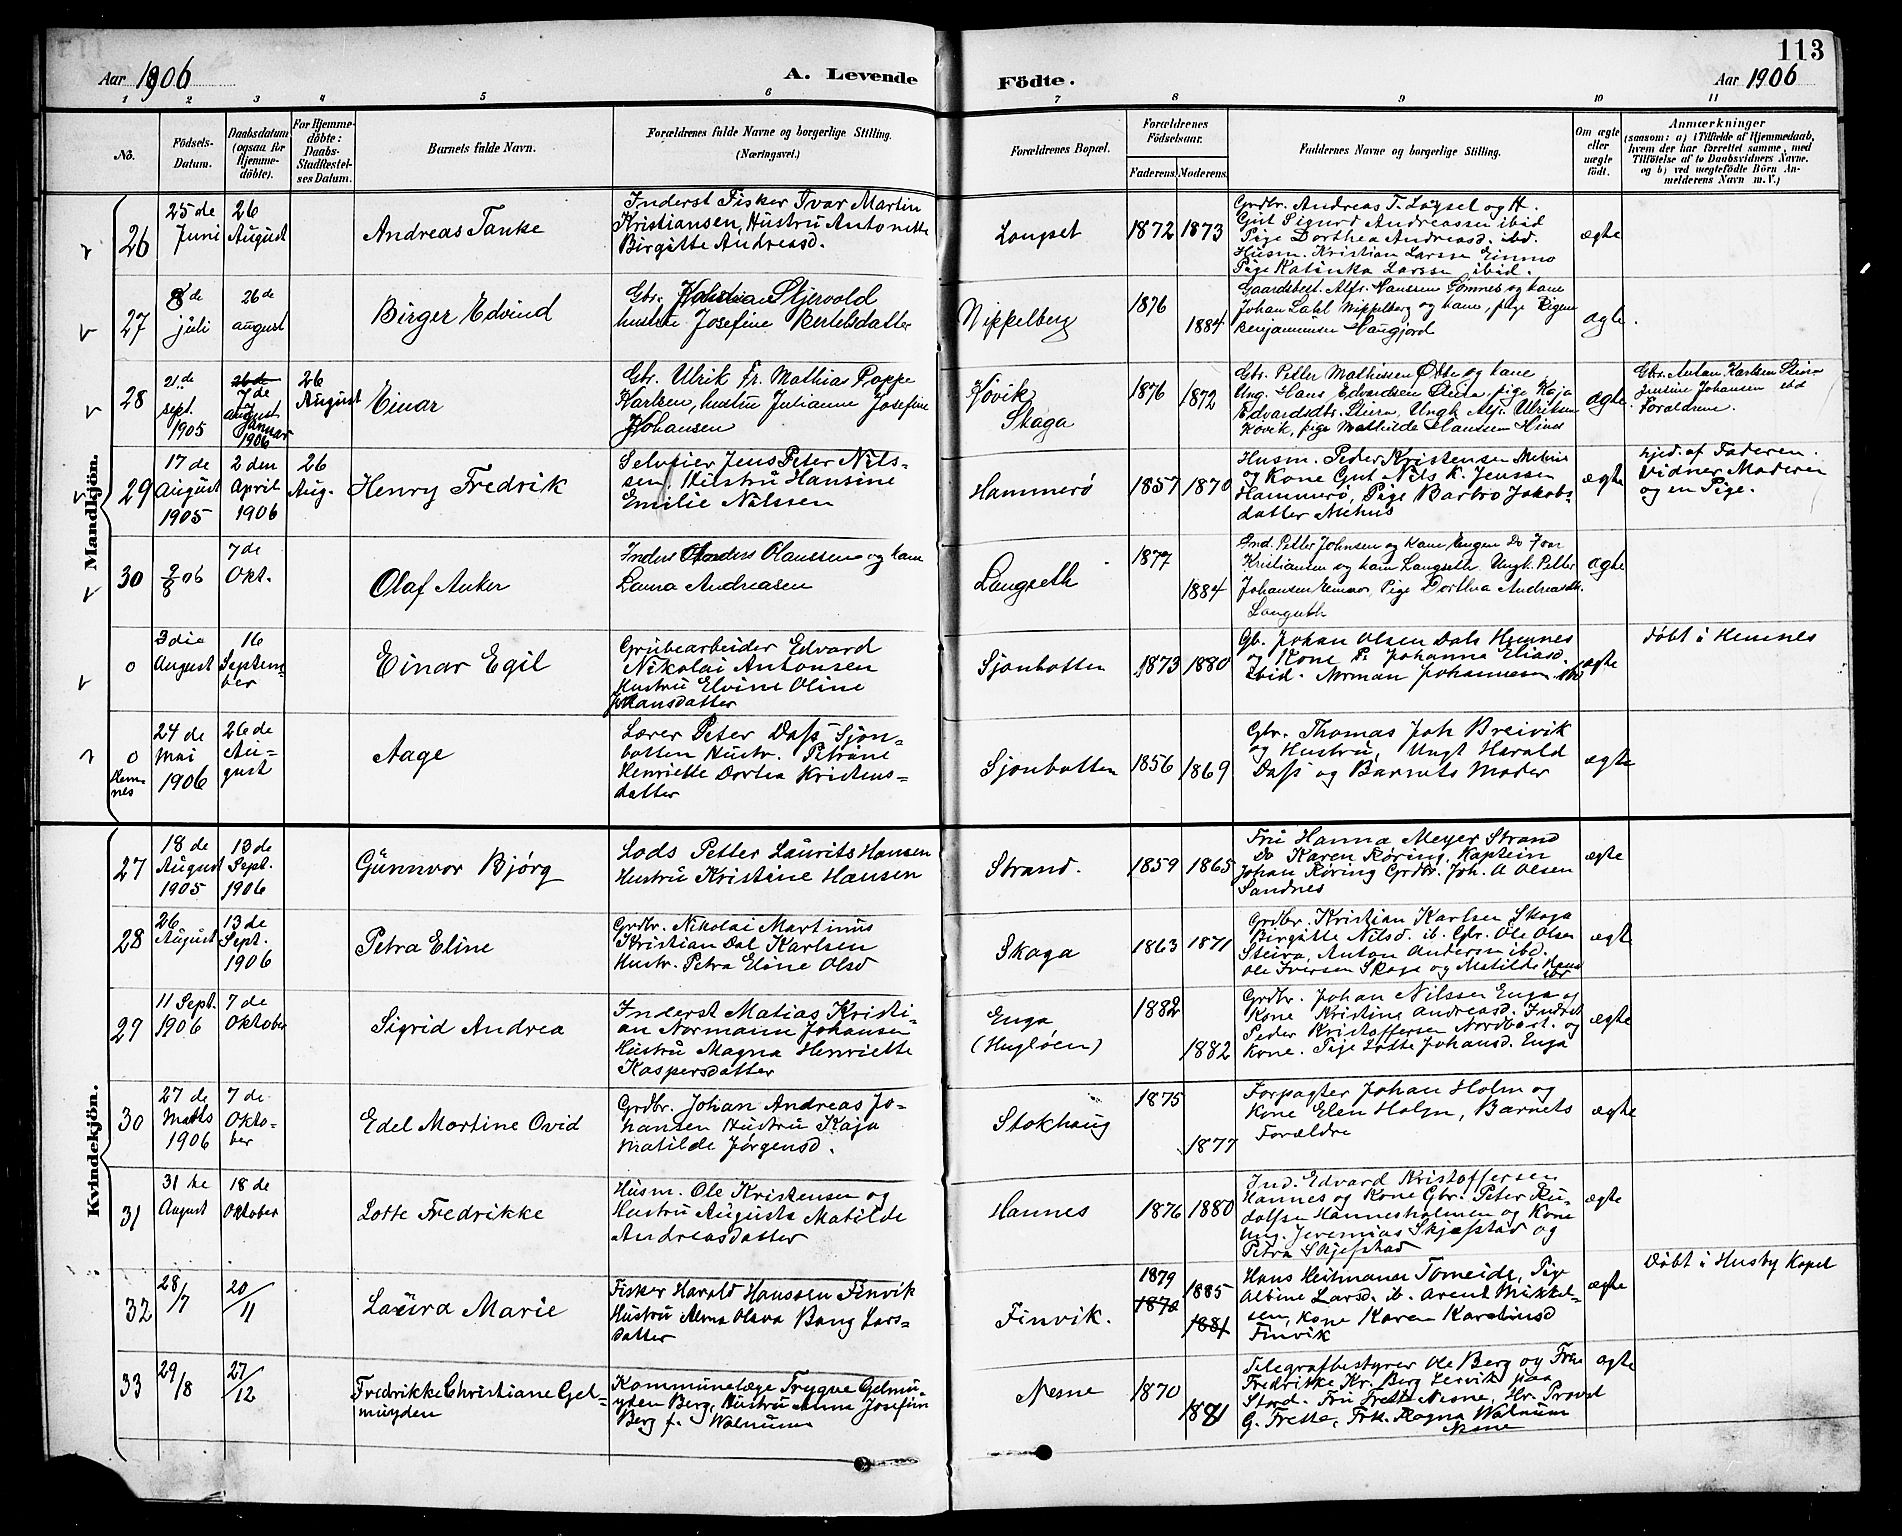 113
Aar 1906
A. Levende
Födte.
Aar 1906
1 2 3 4 5 6 7 8 9 10 11
No.
Födsels-
Datum.
Daabsdatum
(ogsaa for
Hjemme-
döbte).
For Hjemme-
döbte:
Daabs-
Stadfæstel-
ses Datum.
Barnets fulde Navn.
Forældrenes fulde Navne og borgerlige Stilling.
(Næringsvei.)
Forældrenes Bopæl.
Forældrenes
Födselsaar.
Faderens. Moderens.
Faddernes Navne og borgerlige Stilling.
Om ægte
eller
uægte
födt.
Anmærkninger
(saasom: a) i Tilfælde af Hjemmedaab,
hvem der har forrettet samme, med
Tilföielse af to Daabsvidners Navne.
og b) ved uegtefödte Börn An-
melderens Navn m. V.)
Mandkjön.
26
25 de
Juni
26
August
Andreas Tanke
Inderst Fisker Ivar Martin
Kristiansen, Hustru Antonette
Birgitte Andreasd.
Langset
1872 1873
Grdbr. Andreas T. Langset og H.
Gut Sigurd Andreassen ibid
Pige Dorthea Andreasd. ibd.
Husm. Kristian Larssen Einmo
Pige Katinka Larssen ibid.
ægte
27
8 de
juli
26de
august
Birger Edvind
Gbr. Stjervold
hustru Josefine Bertelsdatter
Nippelberg
1876
1884
Gaardsbest. Alfr. Hanssen Sömnes og kone
Johan Dahl Nippelberg og kone, pige
Benjaminsen Haugjord
ægte
28
21 de
sept.
1905
26 de
7de
august
Januar
1906
26
August
Einar
Gbr. Ulrik Fr. Mathias Poppe
Karlsen, hustru Julianne Josefine
Johansen
Høvik
Skaga
1876 1872
Gbr. Petter Mathissen Øtte og kone
Ung. Hans Edvardsen Steira, pige Kaja
Edvardsdtr. Steira, Ungk. Alfr. Ulriksen
Kovik, pige Mathilde Hanssen Hund
ægte
Gbr. Anton Karlsen Steira
Jensine Johansen ibd
Forældrene.
29
17 de
August
1905
2 den
April
1906
26
Aug.
Henry Fredrik
Selveier Jens Peter Nils-
sen, Hustru Hansine
Emilie Nilssen
Hammerø
1857 1870
Husm. Peder Kristensen Nehus
og Kone Gut Nils K. Jenssen
Hammerø, Pige Barbro Jakobs-
datter Nehus
ægte
Hjed. af Faderen.
Vidner Moderen
og en Pige.
30
2/8 06
7 de
Okt.
Olaf Anker
Inders Anders Olaussen og kone
Laura Andreasen
Langseth
1877
1884
Ind. Petter Johnsen og Kone Engen Do Ivar
Kristiansen og kone Langseth. Ungk. Petter
Johansen Einmo, Pige Dorthea Andreasdtr.
Langseth
ægte
0
3 die
August
16
Septem-
ber
Einar Egil
Grubearbeider Edvard
Nikolai Antonsen
Hustru Elvine Oline
Johansdatter
Sjonbotten
1873 1880
Gb. Johan Olsen Dals Hemnes
og Kone P. Johanna Eliasd.
ibid. Norman Johannesen ibd
ægte
döbt i Hemnes
0
Hem-
nes
24 de
Mai
1906
26 de
Au-
gust
Aage
Lærer Peter Dass Sjon-
botten Hustr. Petrine
Henriette Dortea Kristens-
datter
Sjonbotten
1856 1869
Gbr. Thomas Joh Breivik
og Hustru, Ungk Harald
Dass og Barnets Moder
ægte
Kvindekjön.
27
18 de
August
1905
13 de
Sept.
1906
Gunnvor Bjørg
Lods Petter Laurits Hansen
Hustru Kristine Hansen
Strand.
1859 1865
Fru Hanna Meyer Strand
Do Karen Røring, Kaptein
Johan Røring Grdbr. Joh. A Olsen
Sandnes
ægte
28
26
August
13 de
Sept.
1906
Petra Eline
Grdbr. Nikolai Martinus
Kristian Dal Karlsen
Hustr. Petra Eline Olsd
Skaga
1863 1871
Grdbr. Kristian Karlsen Skaga
Birgitte Nilsd. ib. Gbr. Ole Olsen
Steira, Anton Andersen ibd.
Ole Iversen Skaga og Matilde Hans
ibr
ægte
29
11 Sept.
1906
7 de
Oktober
Sigrid Andrea
Inderst Matias Kristi-
an Normann Johansen
Hustru Magna Henriette
Kaspersdatter
Enga
(Hugløen)
1882
1882
Grdbr. Johan Nilssen Enga og
Kone Kristine Andreasd. Indrst
Peder Kristoffersen Nordbost. og
Kone. Pige Lotte Johansd. Enga
ægte
30
27 de
Marts
1906
7 de
Okto-
ber
Edel Martine Ovid
Grdbr. Johan Andreas Jo-
hansen Hustru Kaja
Matilde Jørgensd.
Stokhaug
1875
1877
Forpagter Johan Holm og
Kone Elen Holm, Barnets
Forældre
ægte
31
31 te
August
18 de
Oktober
Lotte Fredrikke
Husm. Ole Kristensen og
Hustru Augusta Matilde
Andreasdatter
Hannes
1876 1880
Ind. Edvard Kristoffersen
Hannes og Kone Gbr. Peter Ru-
dolfsen Hannesholmen og Kone
Ung. Jeremias Skjefstad og
Petra Skjefstad
ægte
32
28/7
20/11
Laura Marie
Fisker Harald Hanssen Finvik
Hustru Alma Olava Bang Lars-
datter
Finvik.
1879 1885
1870
1881
Hans Heitmann Tomeide, Pige
Albine Larsd. ib. Arent Mikkel-
sen, kone Karen Karolinsd
Finvik
ægte
Døbt i Husby Kapel
33
29/8
27/12
Fredrikke Christiane Gel-
muyden
Kommunelæge Trygve Gelmu-
yden Berg, Hustru Anna Josefine
Berg f. Walnum
Nesne
1870
1881
Telegrafbestyrer Ole Berg og Frue
Fredrikke Kr. Berg Lervik paa
Stord. Fru Frette Nesne, Hr. Provst
G. Frette, Frk. Ragna Walnum
Nesne
ægte